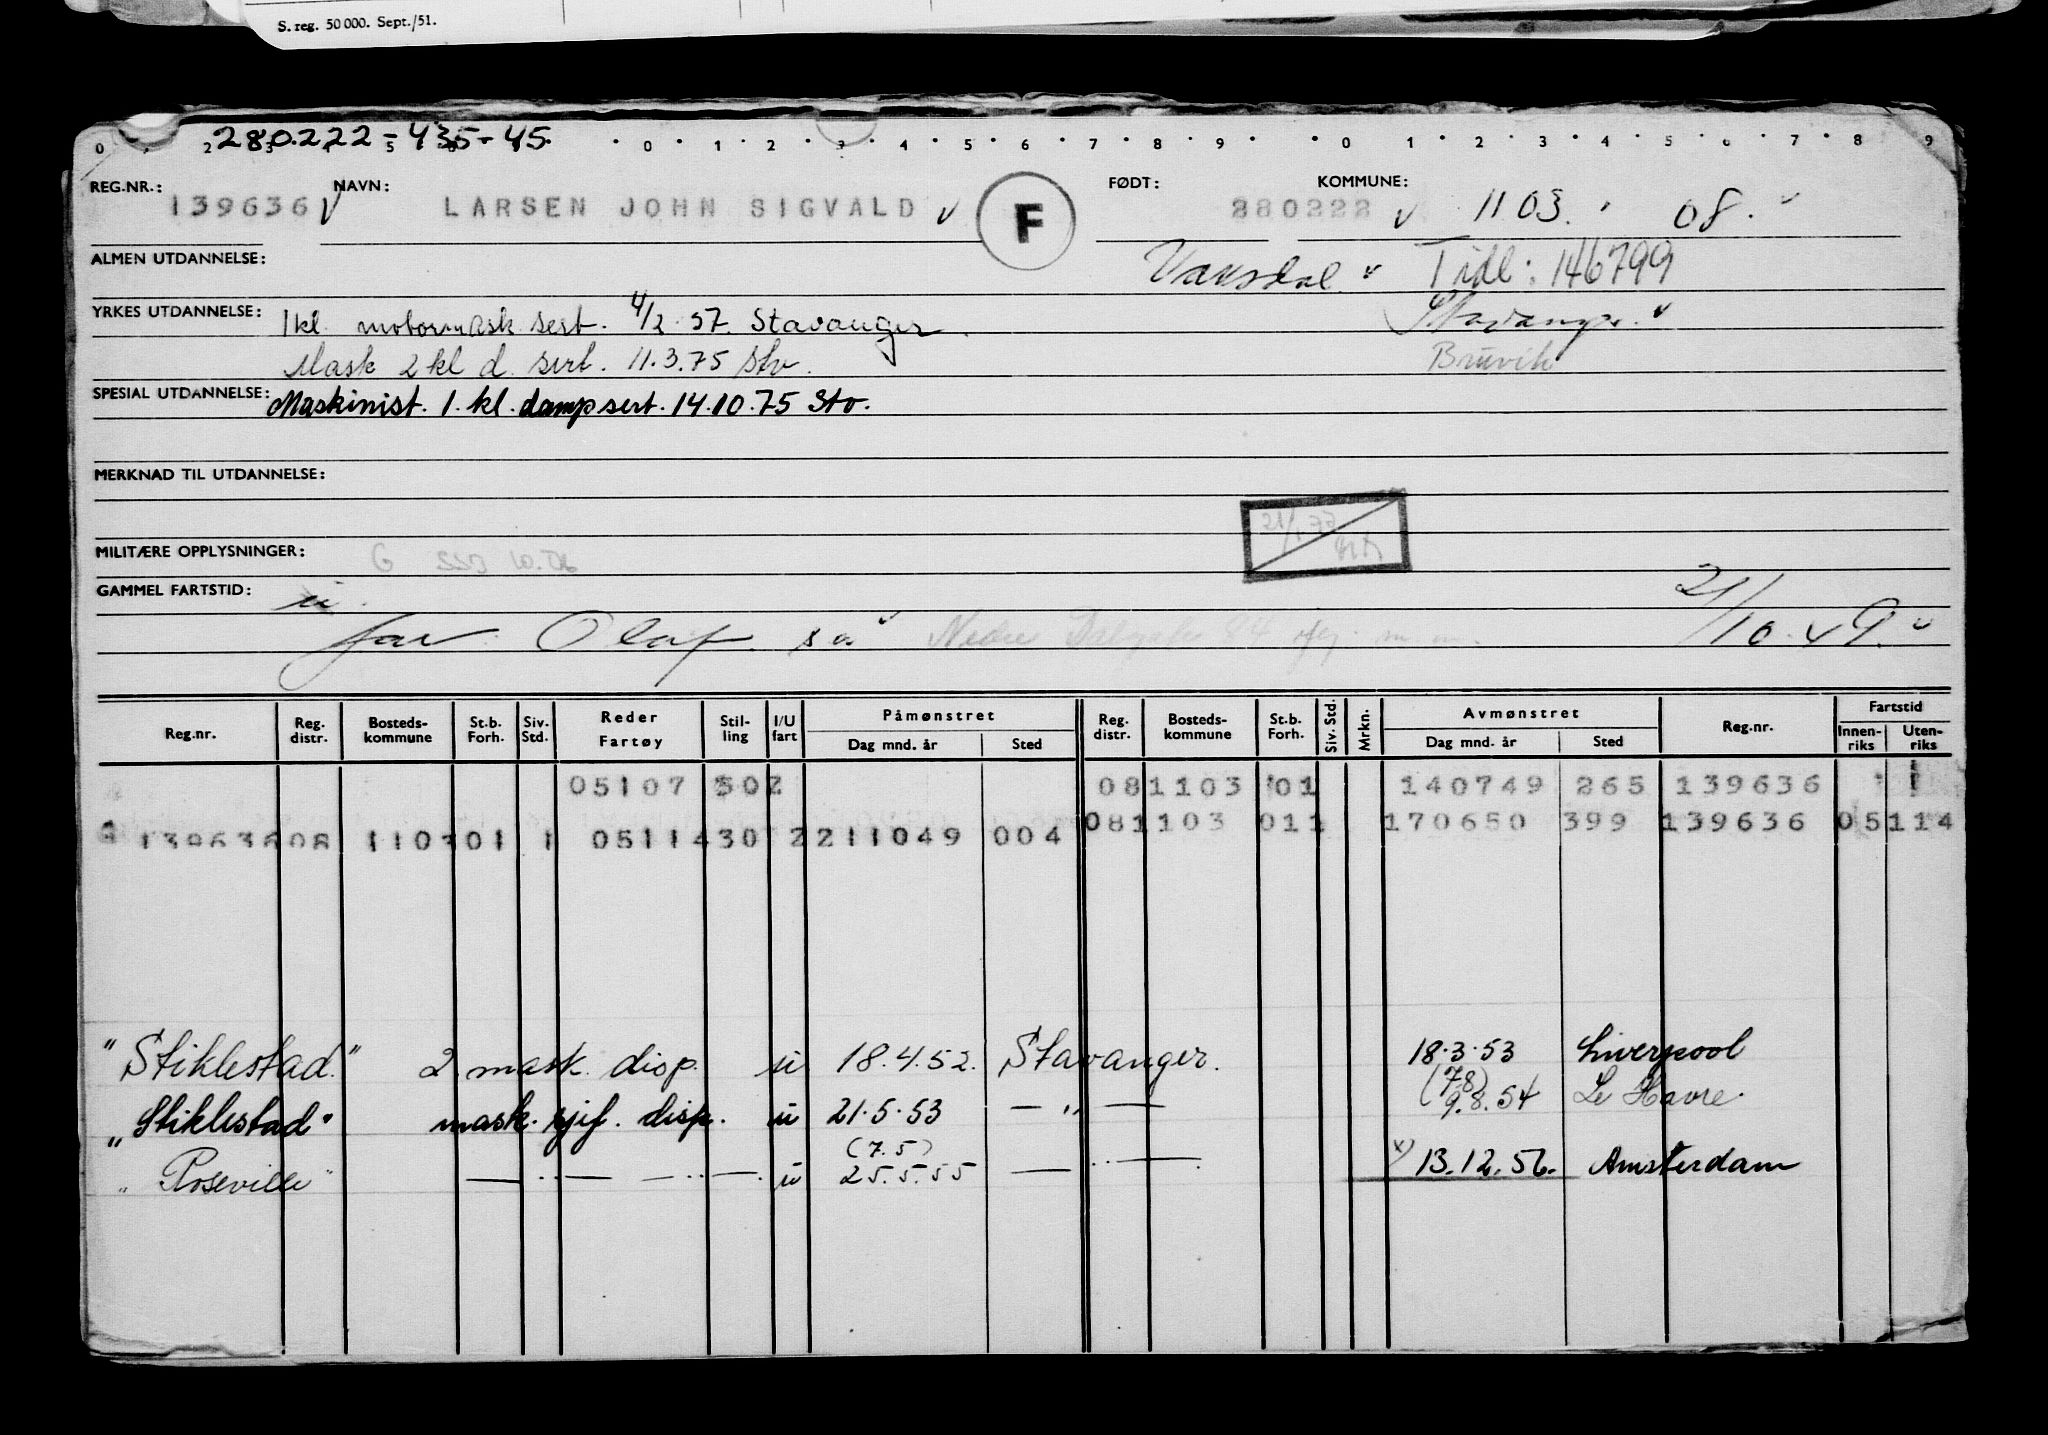 S. reg. 50 000. Sept./51.
280222-435-45.
0 2 3 5 0 1 2 3 4 5 6 7 8 9 0 1 2 3 4 5 6 7 8 9
REG.NR.: NAVN: FØDT: KOMMUNE:
139636 LARSEN JOHN SIGVALD F 280222 11 03. 08.
ALMEN UTDANNELSE: Vaksdal Tidl: 146799
YRKES UTDANNELSE: 1 kl. motormask. sert. 4/2.57. Stavanger. Stavanger
Mask 2 kl d. sert. 11.3.75 Stv. Bruvik
SPESIAL UTDANNELSE: Maskinist. 1. kl. damp sert. 14.10.75 Stv.
MERKNAD TIL UTDANNELSE:
21/1 77
MILITÆRE OPPLYSNINGER: G
GAMMEL FARTSTID: u.
far: Olaf s.a. Nedre 21/10.49.
Reg.nr. Reg. distr. Bosteds-kommune St.b. Forh. Siv. Std. Reder Fartøy Stil-ling I/U fart Påmønstret Dag mnd. år Sted Reg. distr. Bosteds-kommune St.b. Forh. Siv. Std. Mrkn. Avmønstret Dag mnd. år Sted Reg.nr. Fartstid Innen-riks Uten-riks
05107 302 081103 01 140749 265 139636
139636 08 1103 01 1 05114 30 2 211049 004 081103 011 170650 399 139636 05 114
"Stiklestad" 2. mask. disp. u 18.4.52. Stavanger. 18.3.53 Liverpool
"Stiklestad" mask. sjef. disp. u 21.5.53 — " — (7.8) 9.8.54 Le Havre.
"Roseville" — " — — " — u (7.5) 25.5.55 — " — x) 13.12.56. Amsterdam